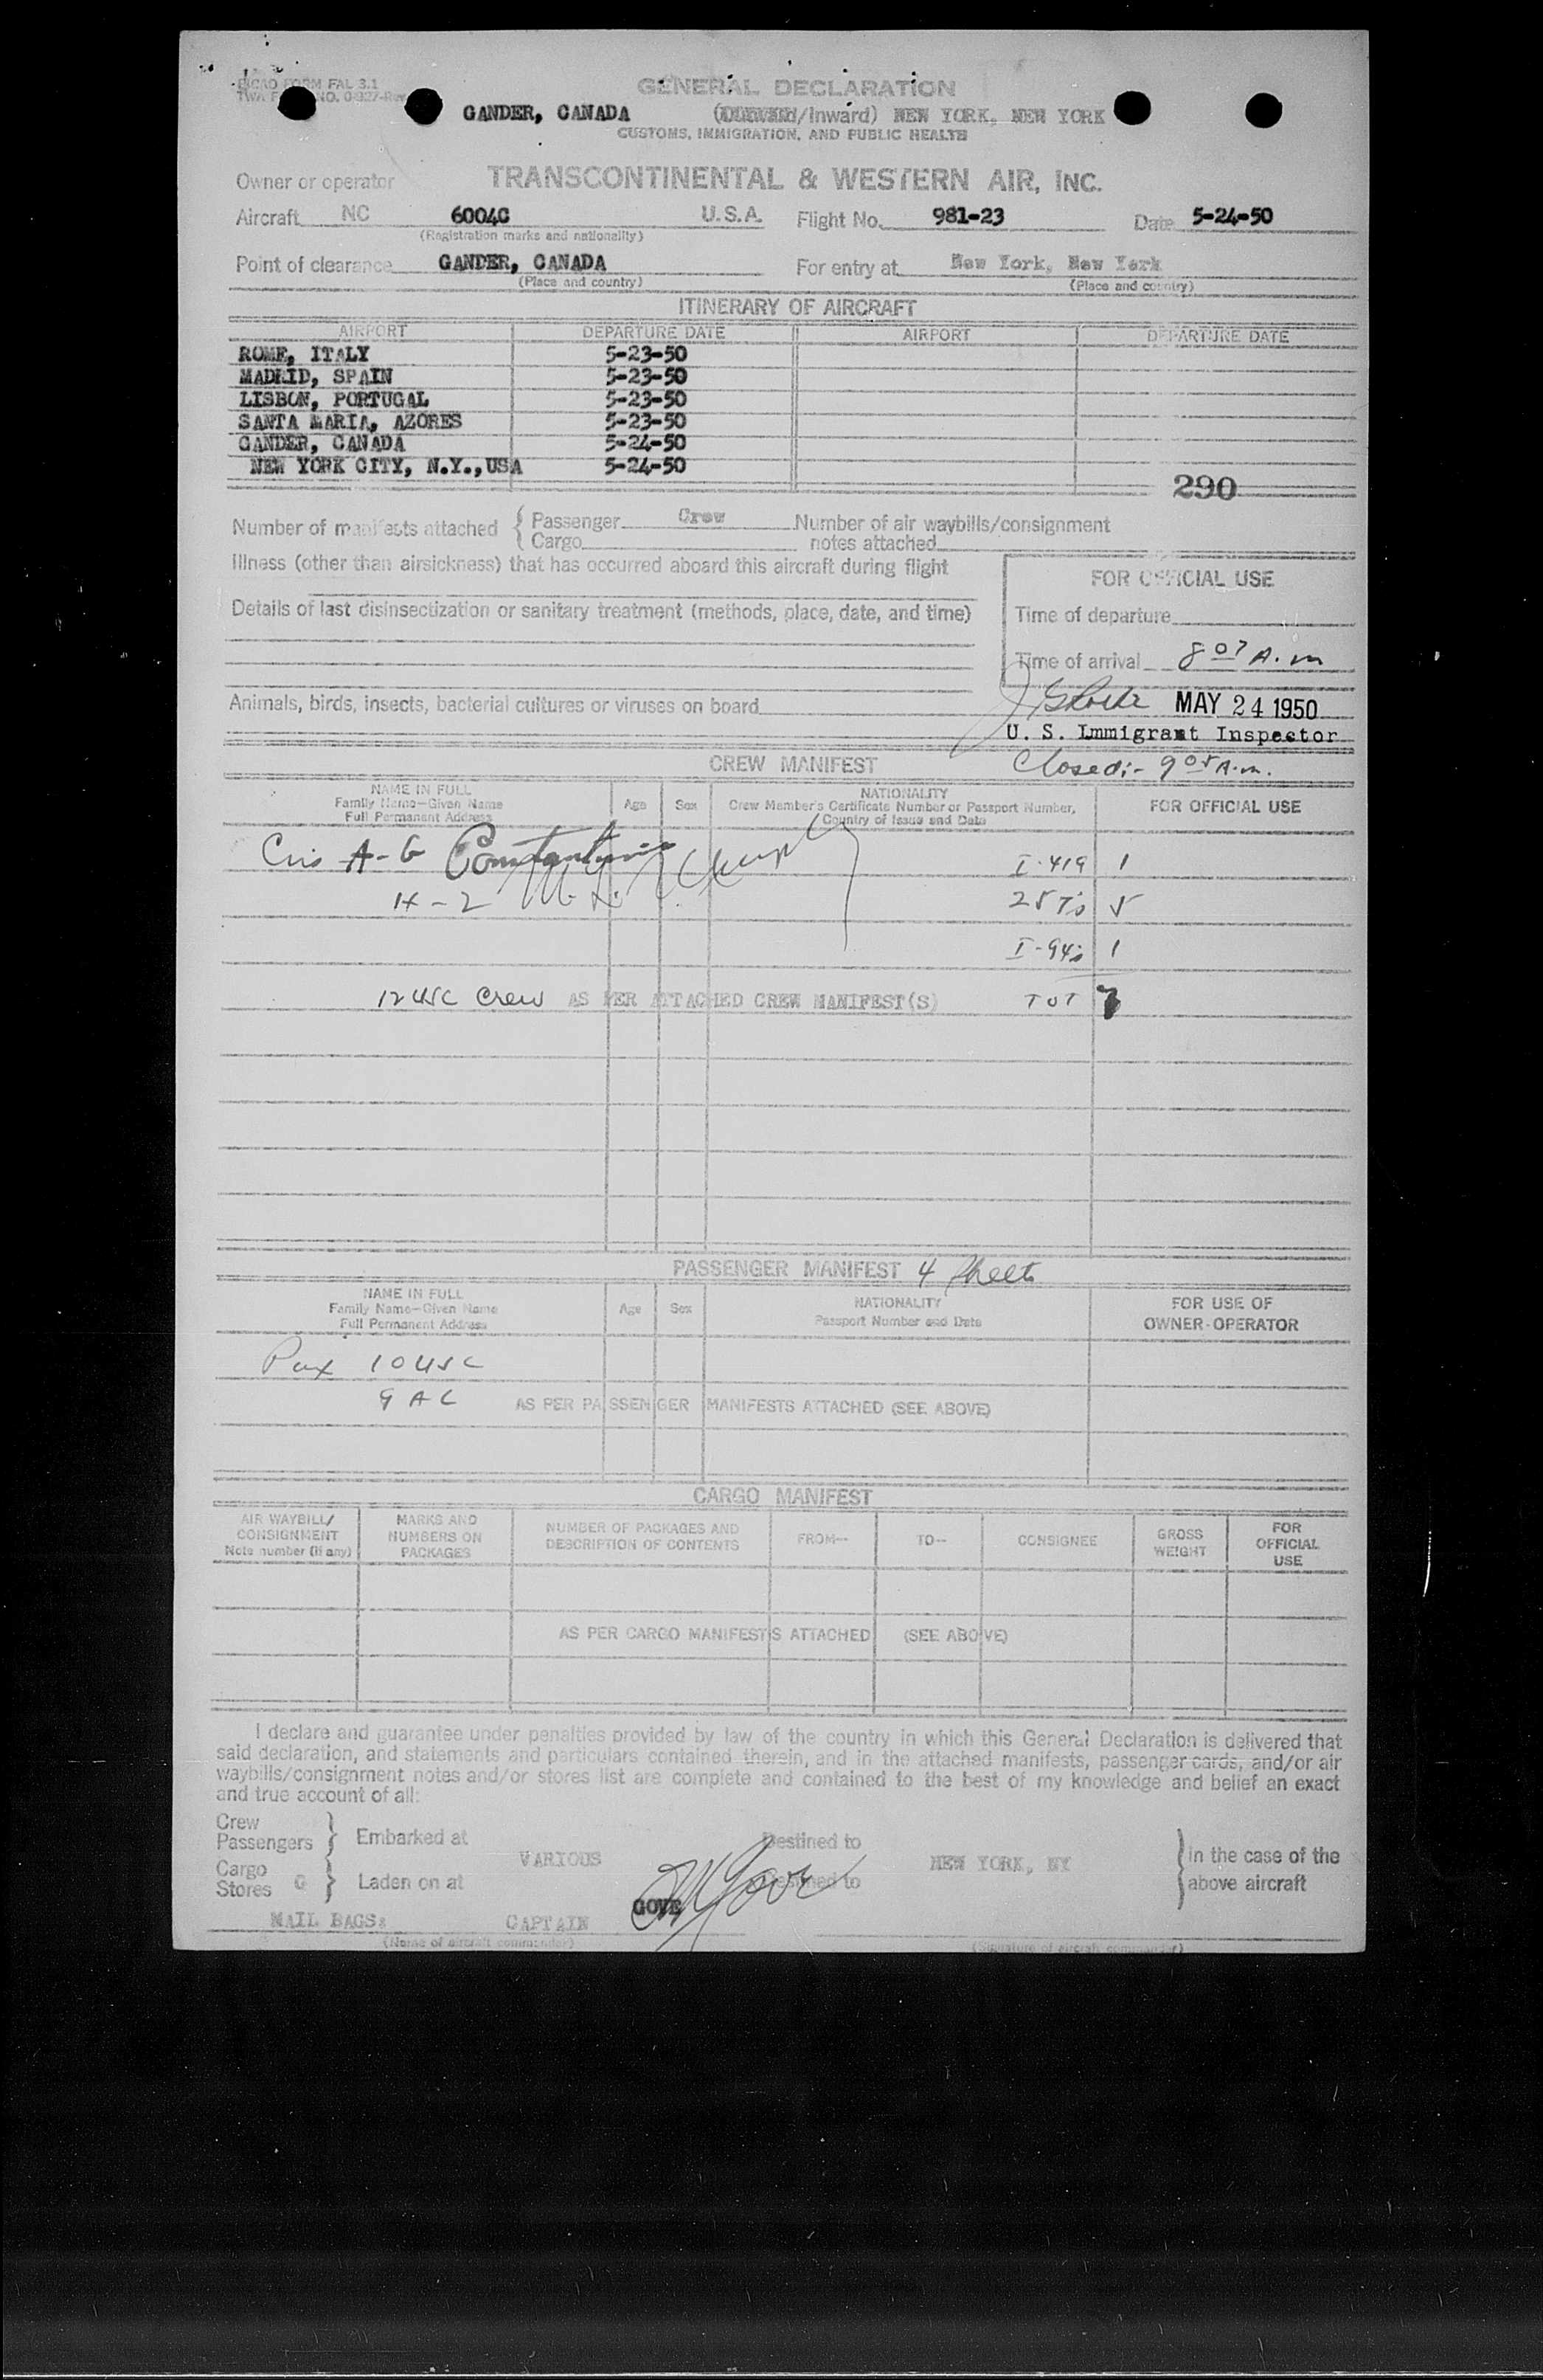 GENERAL DECLARATION
GANDER, CANADA (Outward/Inward) NEW YORK, NEW YORK
CUSTOMS, IMMIGRATION, AND PUBLIC HEALTH
Owner or operator TRANSCONTINENTAL & WESTERN AIR, INC.
Aircraft NC 6004C U.S.A. Flight No. 981-23 Date 5-24-50
(Registration marks and nationality)
Point of clearance GANDER, CANADA For entry at New York, New York
(Place and country) (Place and country)
ITINERARY OF AIRCRAFT
AIRPORT DEPARTURE DATE AIRPORT DEPARTURE DATE
ROME, ITALY 5-23-50
MADRID, SPAIN 5-23-50
LISBON, PORTUGAL 5-23-50
SANTA MARIA, AZORES 5-23-50
GANDER, CANADA 5-24-50
NEW YORK CITY, N.Y.,USA 5-24-50
290
Number of manifests attached { Passenger Crew Number of air waybills/consignment
Cargo notes attached
Illness (other than airsickness) that has occurred aboard this aircraft during flight
FOR OFFICIAL USE
Details of last disinsectization or sanitary treatment (methods, place, date, and time)
Time of departure
Time of arrival 8 07 A.m
Animals, birds, insects, bacterial cultures or viruses on board
MAY 24 1950
U. S. Immigrant Inspector
CREW MANIFEST Closed:- 9 05 A.m.
NAME IN FULL
Family Name-Given Name
Full Permanent Address
Age Sex
NATIONALITY
Crew Member's Certificate Number or Passport Number,
Country of Issue and Date
FOR OFFICIAL USE
A-G I-419 1
H-2 257's 5
I-94s 1
12 USC Crew AS PER ATTACHED CREW MANIFEST(S) TOT 7
PASSENGER MANIFEST 4 Sheets
NAME IN FULL
Family Name-Given Name
Full Permanent Address
Age Sex
NATIONALITY
Passport Number and Date
FOR USE OF
OWNER-OPERATOR
Pax 10 USC
9 AC AS PER PASSENGER MANIFESTS ATTACHED (SEE ABOVE)
CARGO MANIFEST
AIR WAYBILL/
CONSIGNMENT
Note number (if any)
MARKS AND
NUMBERS ON
PACKAGES
NUMBER OF PACKAGES AND
DESCRIPTION OF CONTENTS
FROM-
TO-
CONSIGNEE
GROSS
WEIGHT
FOR
OFFICIAL
USE
AS PER CARGO MANIFESTS ATTACHED (SEE ABOVE)
I declare and guarantee under penalties provided by law of the country in which this General Declaration is delivered that
said declaration, and statements and particulars contained therein, and in the attached manifests, passenger cards, and/or air
waybills/consignment notes and/or stores list are complete and contained to the best of my knowledge and belief an exact
and true account of all:
Crew
Passengers } Embarked at VARIOUS Destined to NEW YORK, NY } in the case of the
Cargo
Stores 0 } Laden on at Destined to above aircraft
MAIL BAGS: CAPTAIN GOVE
(Name of aircraft commander) (Signature of aircraft commander)